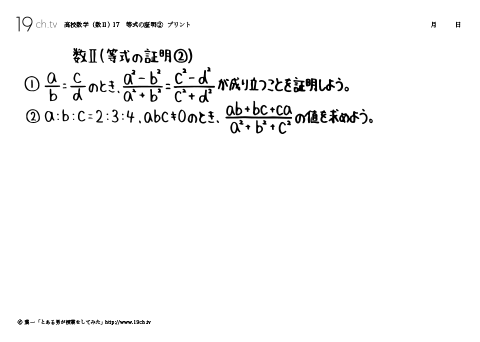 19 ch.tv 高校数学（数Ⅱ）17 等式の証明② プリント 月 日
数Ⅱ(等式の証明②)
① a/b = c/d のとき、(a² - b²)/(a² + b²) = (c² - d²)/(c² + d²) が成り立つことを証明しよう。
② a:b:c=2:3:4、abc≠0のとき、(ab+bc+ca)/(a²+b²+c²) の値を求めよう。
© 葉一「とある男が授業をしてみた」http://www.19ch.tv